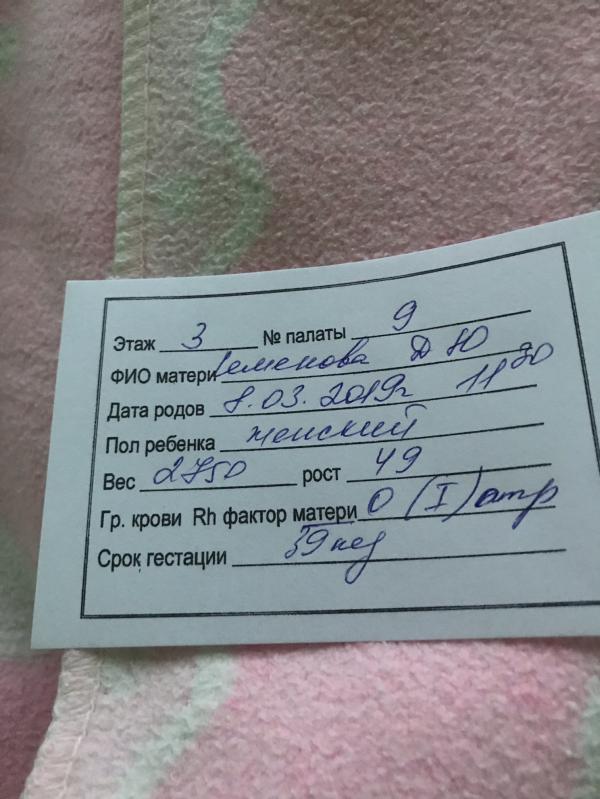 Этаж 3 № палаты 9
ФИО матери Семенова Д Ю
Дата родов 8.03.2019г 11 30
Пол ребенка женский
Вес 2750 рост 49
Гр. крови Rh фактор матери O (I) отр
Срок гестации 39 нед